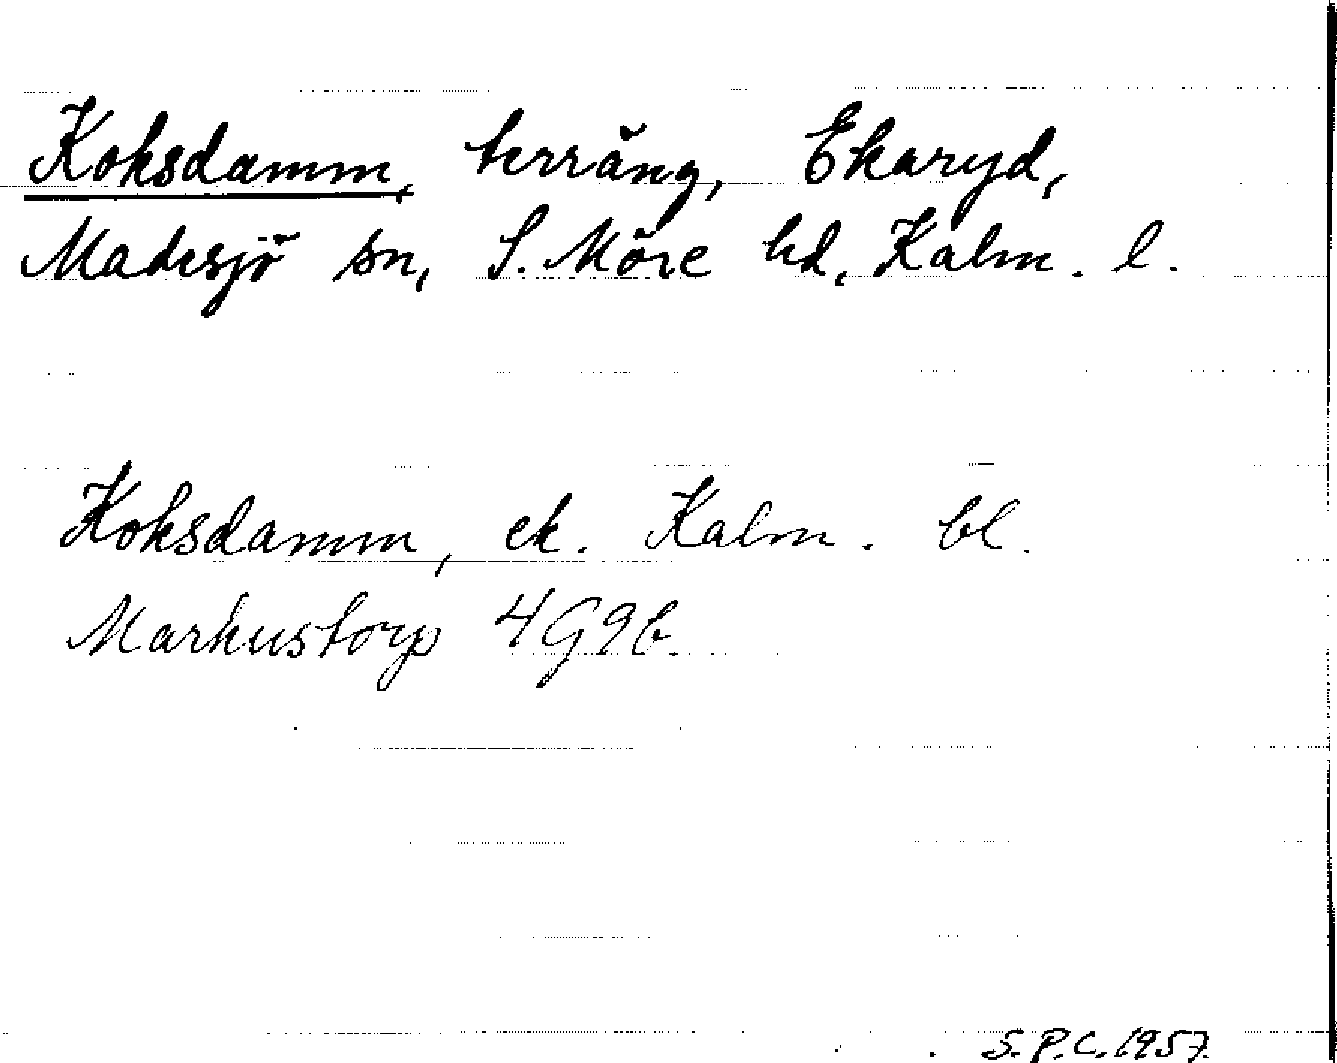 Koksdamm, terräng, Ekaryd,
Madesjö sn, S. Möre hd, Kalm. l.
Koksdamm, ek. Kalm. bl.
Markustorp 4G9b.
S.P.C. 1957